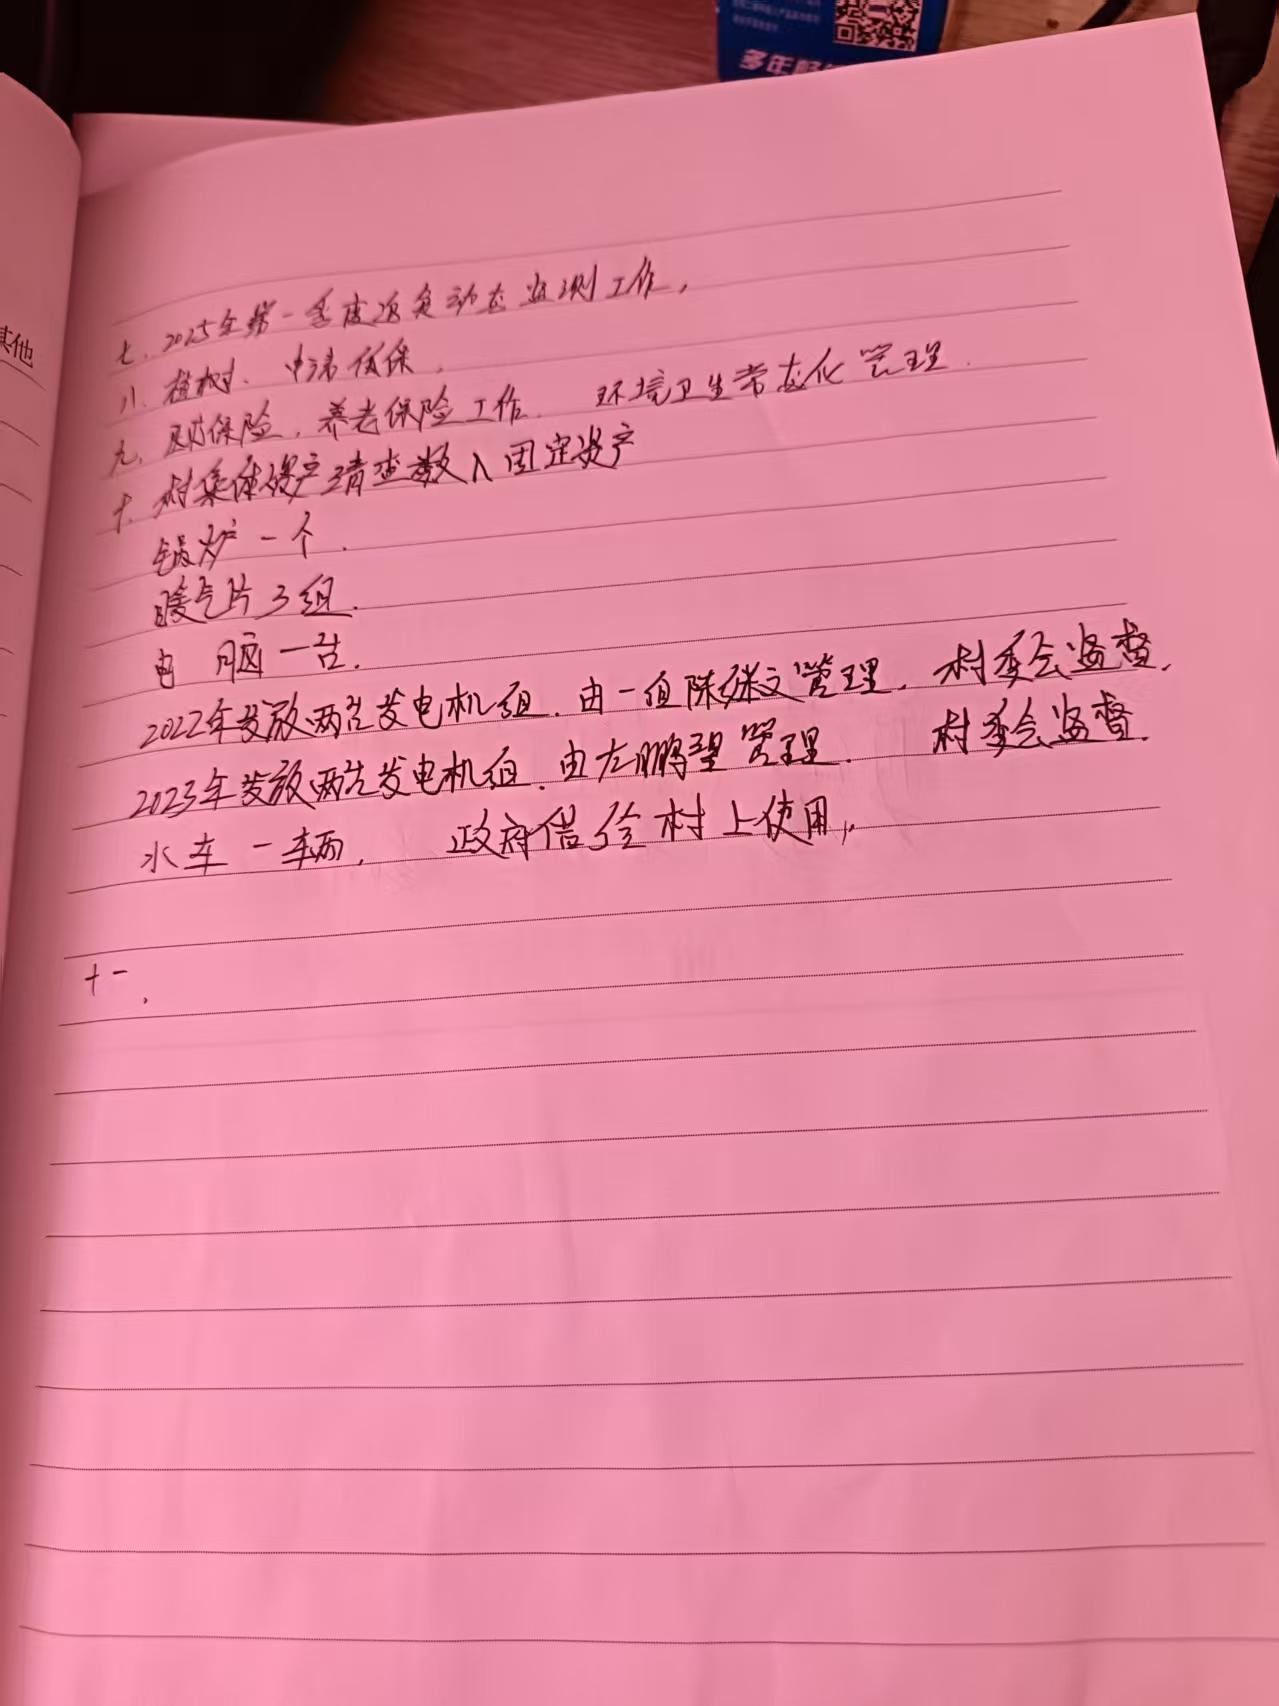 多年
其他
七、2025年第一季度返贫动态监测工作，
八、植树、申请低保，
九、财保险，养老保险工作． 环境卫生常态化管理．
十、村集体资产清查数入固定资产
锅炉一个．
暖气片3组．
电脑一台．
2022年发放两台发电机组．由一组陈继文管理，村委会监督．
2023年发放两台发电机组．由左鹏望管理． 村委会监督．
水车一辆， 政府借给村上使用，
十一，